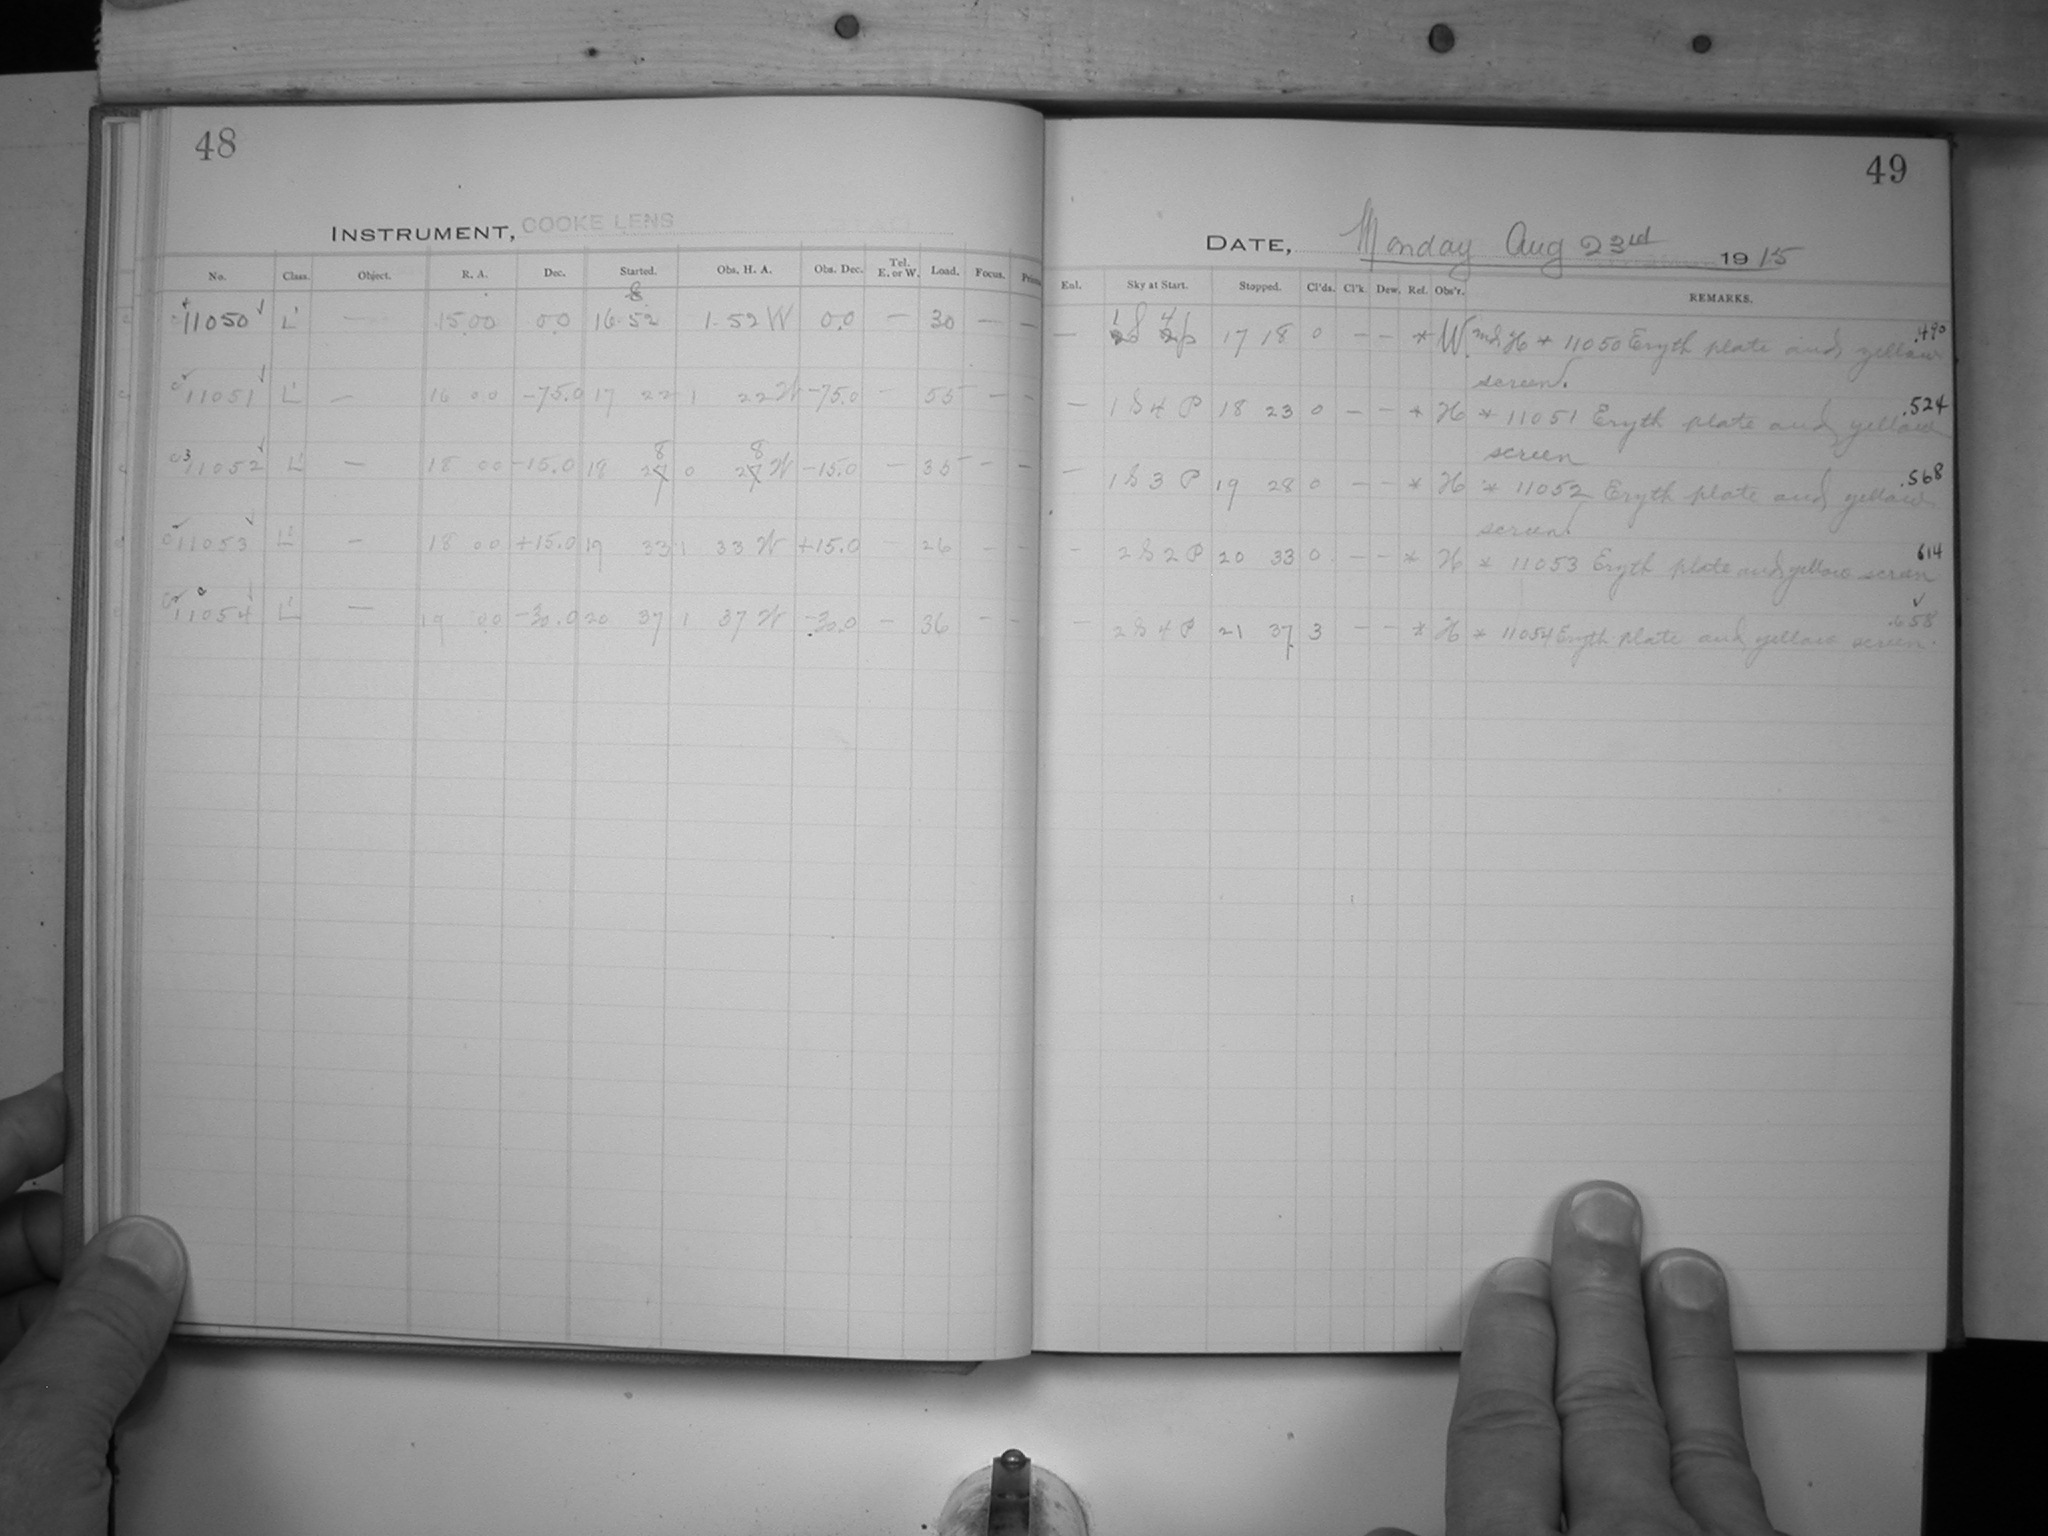 48
INSTRUMENT, COOKE LENS
No. Class. Object. R. A. Dec. Started. Obs. H. A. Obs. Dec. Tel. E. or W. Load. Focus.
11050 L — 15.00 0.0 16.52 1.52 W 0.0 — 30 — —
11051 L — 16 00 -75.0 17 22 1 22 W -75.0 — 55 — —
11052 L — 18 00 -15.0 18 28 0 28 W -15.0 — 35 — —
11053 L — 18 00 +15.0 19 33 1 33 W +15.0 — 26 — —
11054 L — 19 00 -30.0 20 37 1 37 W -30.0 — 36 — —
49
DATE, Monday Aug 23rd 1915
Enl. Sky at Start. Stopped. Cl'ds. Cl'k. Dew. Ref. Obs'r. REMARKS.
— 1 S 4 p 17 18 0 — — * W. and H * 11050 Eryth plate and yellow .490
screen.
— 1 S 4 P 18 23 0 — — * H * 11051 Eryth plate and yellow .524
screen
— 1 S 3 P 19 28 0 — — * H * 11052 Eryth plate and yellow .568
screen
— 2 S 2 P 20 33 0 — — * H * 11053 Eryth plate and yellow screen 614
— 2 S 4 P 21 37 3 — — * H * 11054 Eryth plate and yellow screen. .658